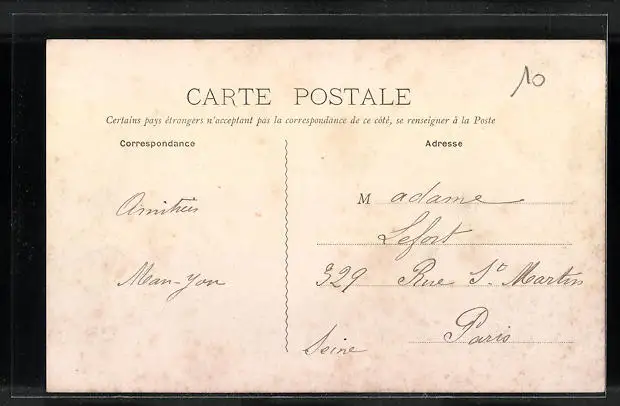 10
CARTE POSTALE
Certains pays étrangers n'acceptant pas la correspondance de ce côté, se renseigner à la Poste
Correspondance
Amitiés
Man-you
Adresse
Madame
Lefort
329 Rue St. Martin
Paris
Seine